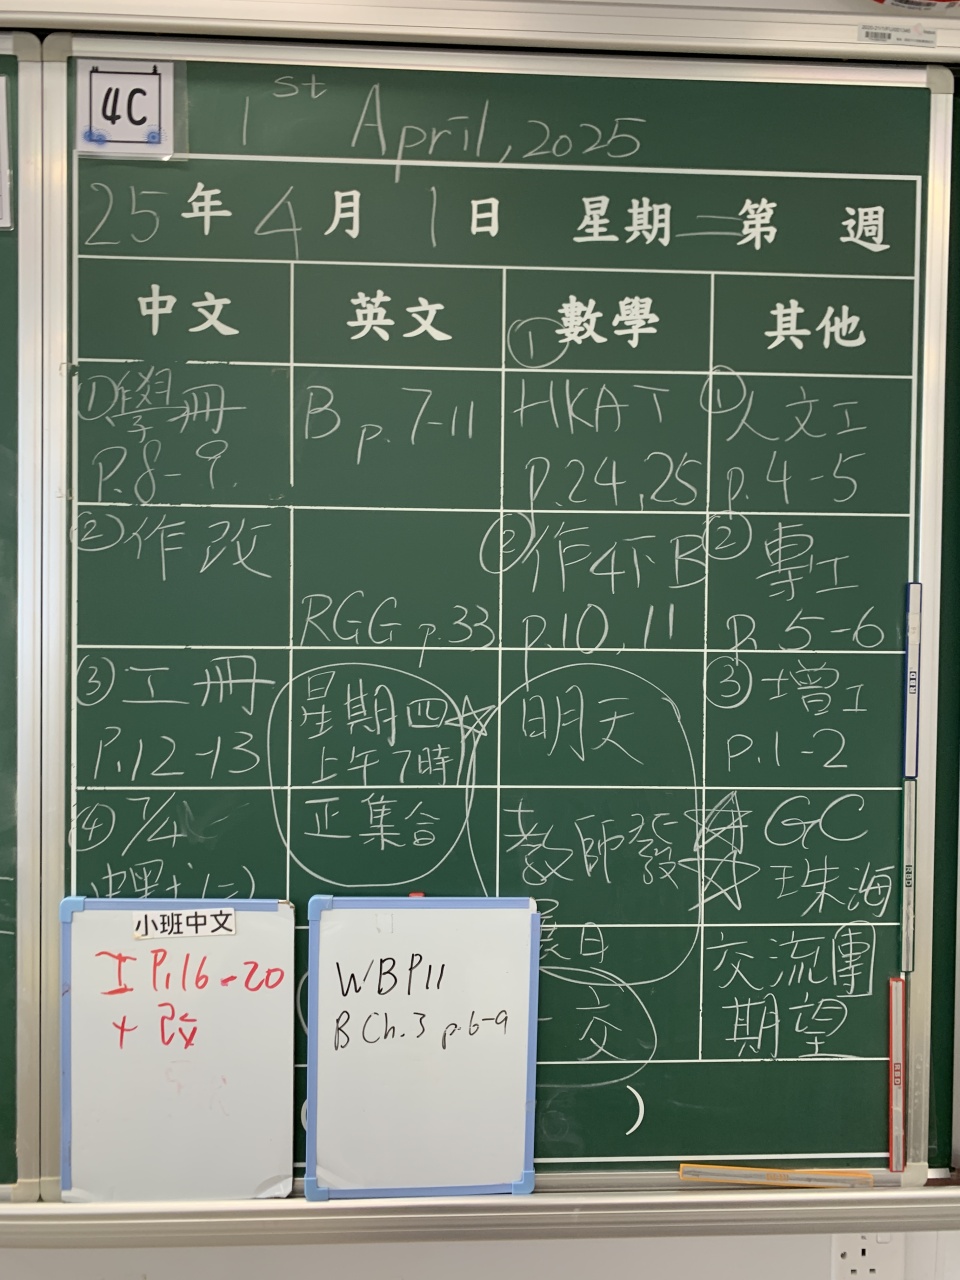 4C
1st April, 2025
25年4月1日 星期二 第 週
中文 英文 數學 其他
①學冊
P.8-9.
B p.7-11
①
HKAT
p.24,25
①人文工
p.4-5
②作改
RGG p.33
②作4下B
p.10,11
②專工
P. 5-6
③工冊
P.12-13
星期四
上午7時
正集合
明天
教師發
展日
③增工
p.1-2
④7/4
GC
珠海
交流團
期望
交
( )
小班中文
工 P.16-20
+ 改
WBP11
B Ch.3 p.6-9